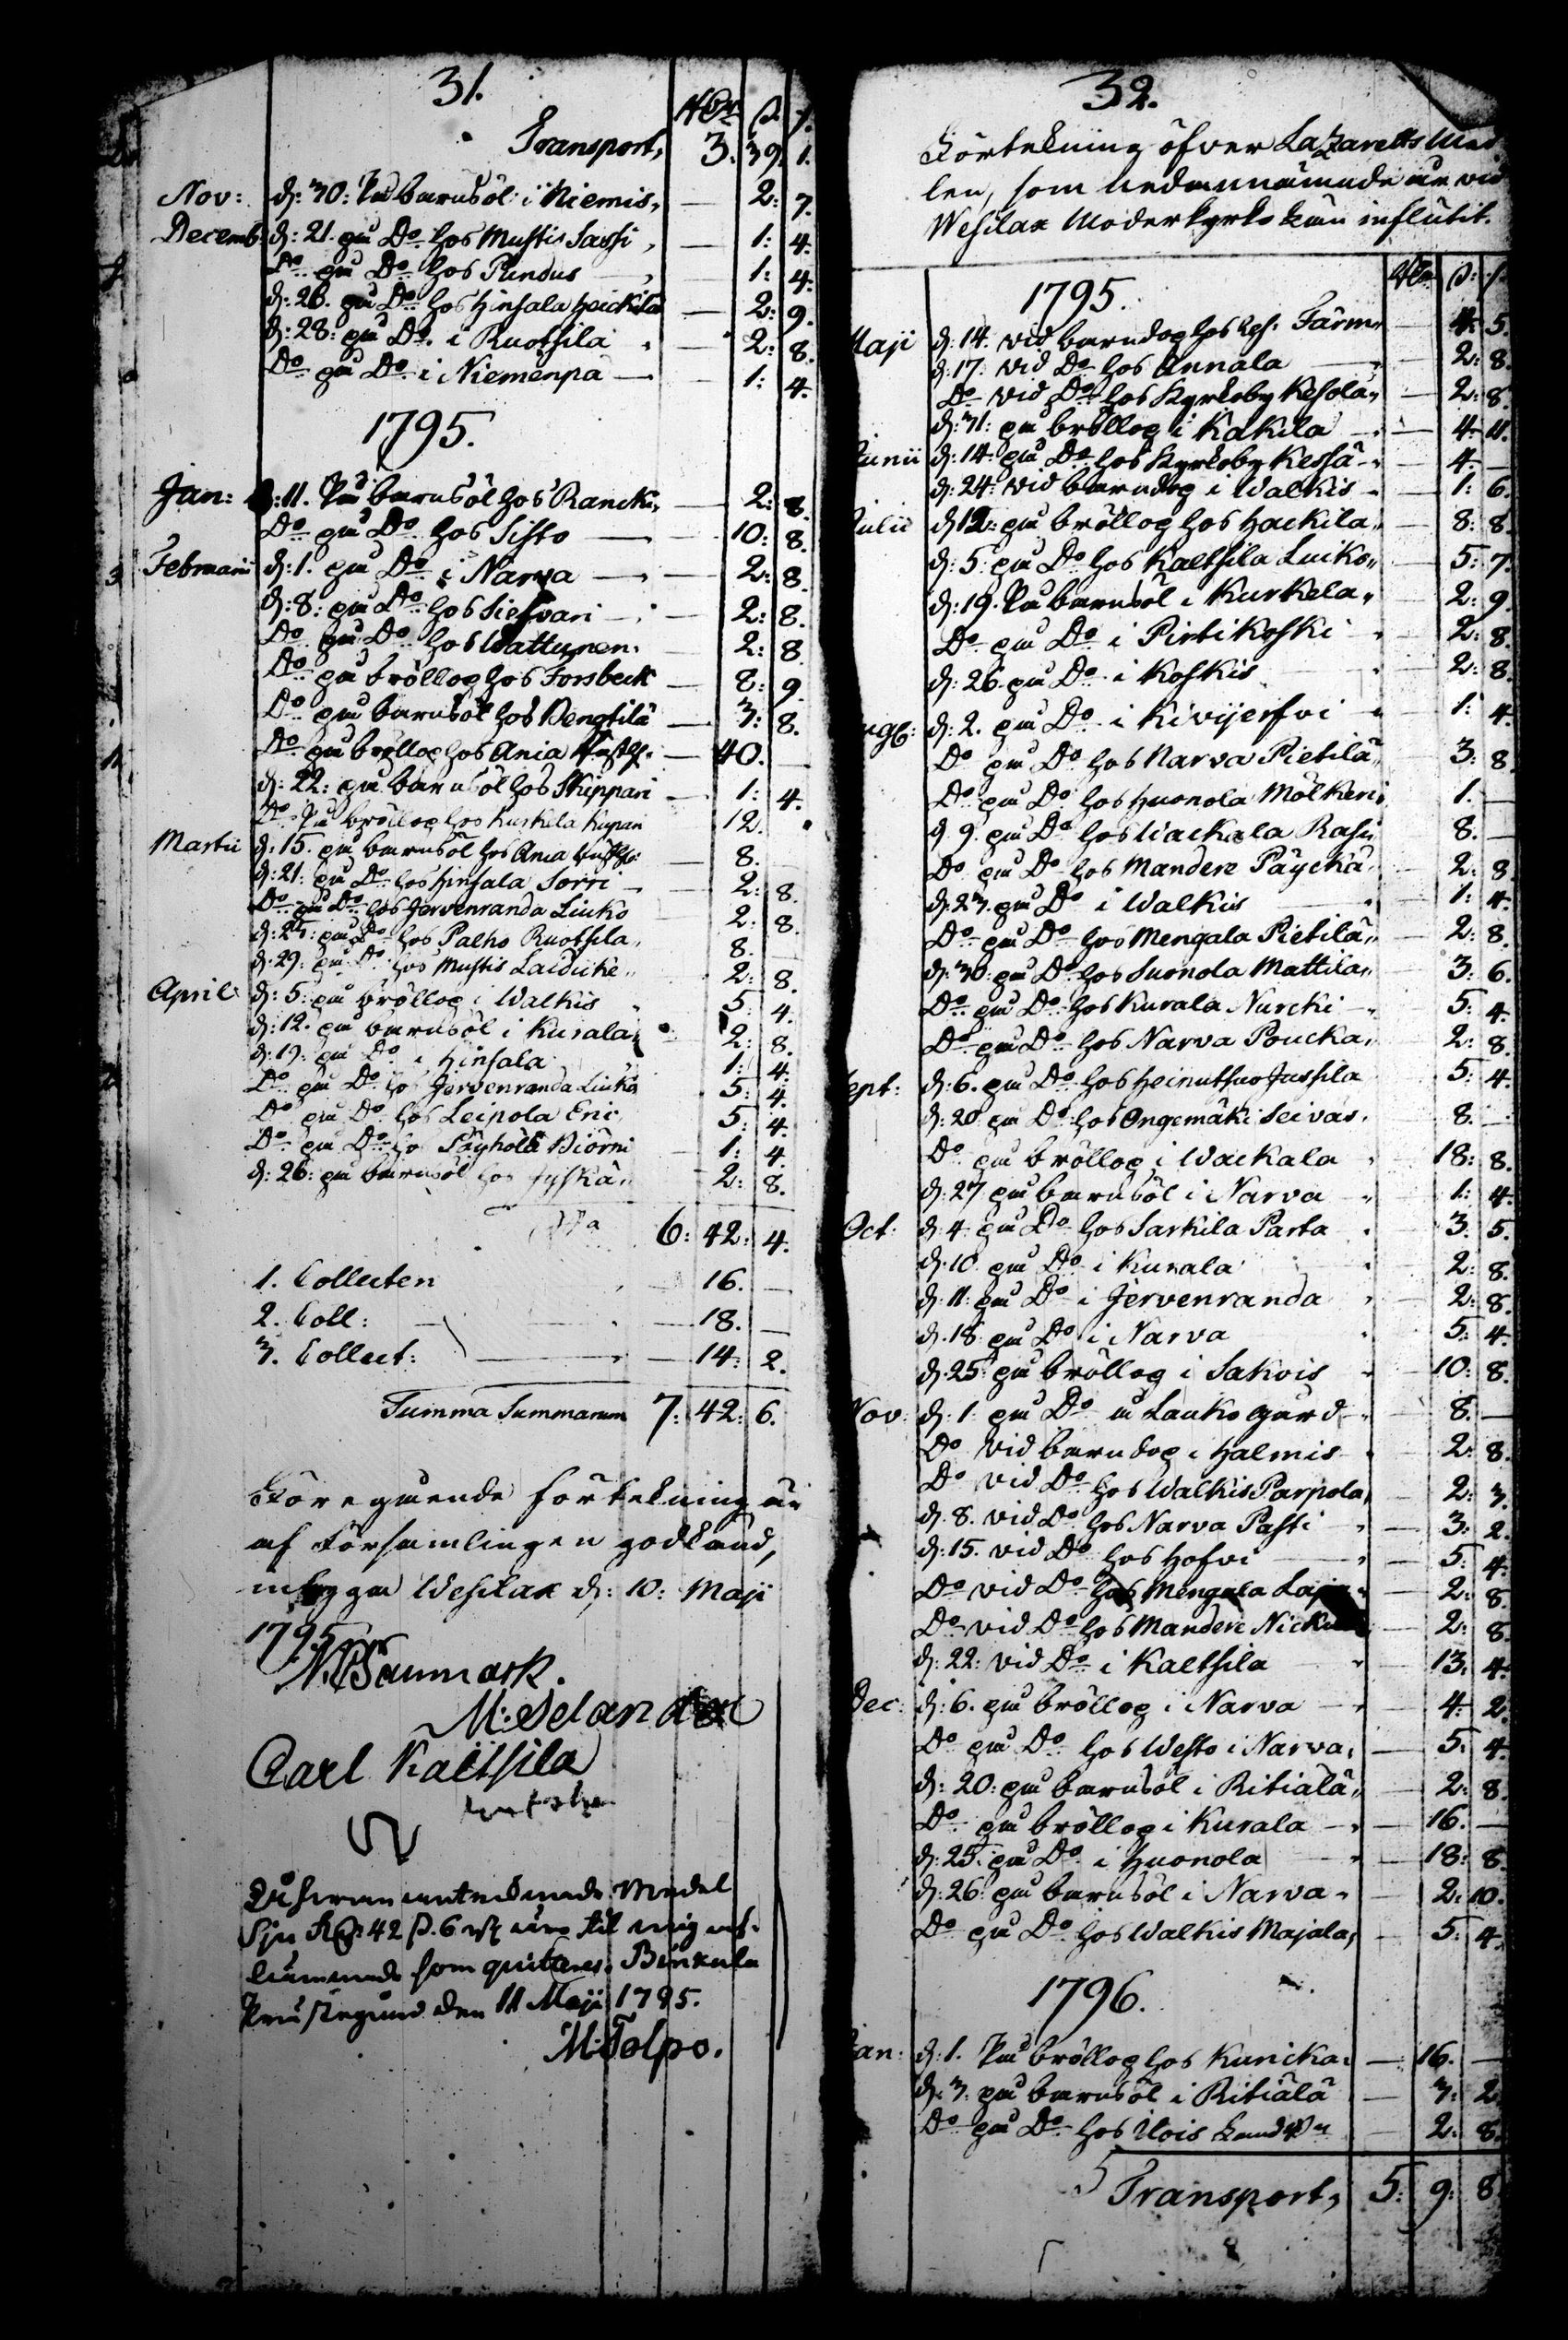 31.
Rdr ß. r.
Transport, 3. 39. 1.
Nov: d: 30: På barnsöl i Niemis, — 2: 7.
Decemb: d: 21. på Do hos Mustis Sassi, — 1: 4.
Do på Do hos Pundus — 1: 4.
d: 26. på Do hos Hinsala Heickilä — 2: 9.
d: 28: på Do i Ruotsila — 2: 8.
Do på Do i Niemenpä — 1: 4.
1795.
Jan: d: 11. På barnsöl hos Rancki, — 2: 8.
Do på Do hos Sisto — 10: 8.
Februarii d: 1. på Do i Narva — 2: 8.
d: 8: på Do hos Siefvari — 2: 8.
Do på Do hos Wattunen. 2: 8.
Do på bröllop hos Forsbeck — 8: 9.
Do på barnsöl hos Bengtilä — 3: 8.
Do på bröllop hos Ania — 40. —
d: 22: på barnsöl hos Skippari — 1: 4.
Do På bröllop hos Kurkila Kupari 12.
Martii d: 15. på barnsöl hos Ania — 8.
d: 21: på Do hos Hinsala Sorri — 2: 8.
Do på Do hos Jervenranda Liuko 2: 8.
d: 23: på Do hos Palho Ruotsila, 8.
d: 29: på Do hos Mustis Laiducke 2: 8.
April: d: 5: på bröllop i Walkis 5: 4.
d: 12. på barnsöl i Kurala 2: 8.
d: 19: på Do i Hinsala 1: 4.
Do på Do hos Jervenranda Liuko 5: 4.
Do på Do hos Leipola Eric 5: 4.
Do på Do hos Pöyhölä Biörni 1: 4.
d: 26: på barnsöl hos Jyskä 2: 8.
6: 42: 4.
1. Collecten — 16. —
2. Coll: — 18. —
3. Collect: — 14: 2.
Summa Summarum 7: 42: 6.
Föregående förtekning är
af Församlingen godkänd,
intygar Wesilax d: 10: Maji
1795.
M: Selander
Carl Kaltsila
Sju Rdr 42 ß. 6
som quitteres. Binkala
den 11 Maji 1795.
M: Tolpo.
32.
Förtekning öfver Lazaretts Med
len, som nedannämnde år vid
Wesilax Moderkyrko hän influtit.
Rdr ß: r.
1795.
Maji d: 14. vid barndop hos Färm, — 4: 5.
d: 17. vid Do hos Annala — 2: 8.
Do vid Do hos Kyrkoby Kesola, — 2: 8.
d: 31: på bröllop i Kakila — 4: 11.
Junii d: 14: på Do hos Kyrkoby Kessä — 4. —
d: 24: vid barndop i Walkis — 1: 6.
Julii d: 12: på bröllop hos Hackila, — 8: 8.
d: 5: på Do hos Kaltsila Luiko, — 5: 7.
d: 19. På barnsöl i Kurkela, — 2: 9.
Do på Do i Pirtikoski 2: 8.
d: 26. på Do i Koskis 2: 8.
Aug: d: 2. på Do i Kivijerfvi 1: 4.
Do på Do hos Narva Pietilä, 3: 8.
Do på Do hos Huonola Mölkeri, 1. —
d: 9. på Do hos Wackala Rasu 8. —
Do på Do hos Mandere Päyckä, 2: 8.
d: 23. på Do i Walkis 1: 4.
Do på Do hos Mengala Pietilä, 2: 8.
d: 30: på Do hos Suonola Mattila, 3: 6.
Do på Do hos Kurala Nurcki — 5: 4.
Do på Do hos Narva Poucka, 2: 8.
Sept: d: 6. på Do hos Heinutsuo Jussila 5: 4.
d: 20 på Do hos Ongemäki Seivas. 8. —
Do på bröllop i Wackala 18: 8.
d: 27 på barnsöl i Narva 1: 4.
Oct: d: 4. på Do hos Sarkila Parta 3. 5.
d: 10 på Do i Kurala 2: 8.
d: 11: på Do i Jervenranda 2: 8.
d: 18 på Do i Narva 5: 4.
d: 25: på bröllop i Sakois 10: 8.
Nov: d: 1: på Do på Lauko gård — 8. —
Do vid barndop i Halmis — 2: 8.
Do vid Do hos Walkis Parpola, — 2: 3.
d: 8. vid Do hos Narva Pasti — 3: 2.
d: 15. vid Do hos Hofvi — 5: 4.
Do vid Do hos Mengala — 2: 8.
Do vid Do hos Mandere — 2: 8.
d: 22: vid Do i Kaltsila 13: 4.
Dec: d: 6. på bröllop i Narva — 4: 2.
Do på Do hos Westo i Narva, — 5: 4.
d: 20: på barnsöl i Ritiälä, — 2: 8.
Do på bröllop i Kurala — 16. —
d: 25. på Do i Huonola — 18: 8.
d: 26: på barnsöl i Narva — 2: 10.
Do på Do hos Walkis Majala, — 5: 4.
1796.
Jan: d: 1. På bröllop hos Kunicka, — 16. —
d: 3: på barnsöl i Ritiälä — 3: 2.
Do på Do hos Ilois — 2: 8.
Transport, 5: 9: 8.